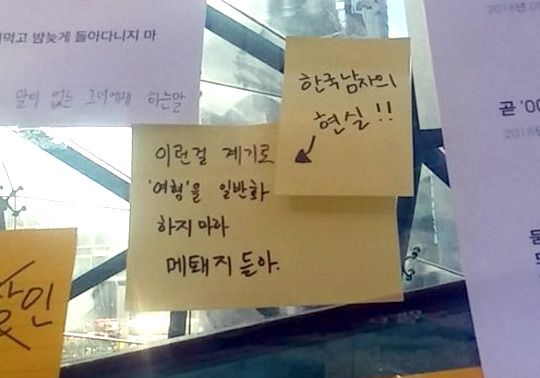 먹고 밤늦게 돌아다니지 마
말이 없는 그녀에게 하는말
한국남자의
현실!!
이런걸 계기로
'여혐'을 일반화
하지 마라
메퇘지 들아.
인
2016년
곧 '00
2016년